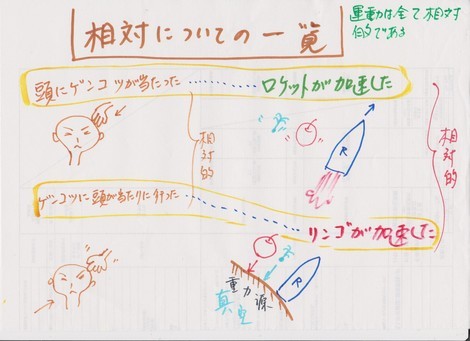 相対についての一覧
運動は全て相対
的である
頭にゲンコツが当たった……ロケットが加速した
相対的
R
相対的
ゲンコツに頭が当たりに行った……リンゴが加速した
重力源
真空
R